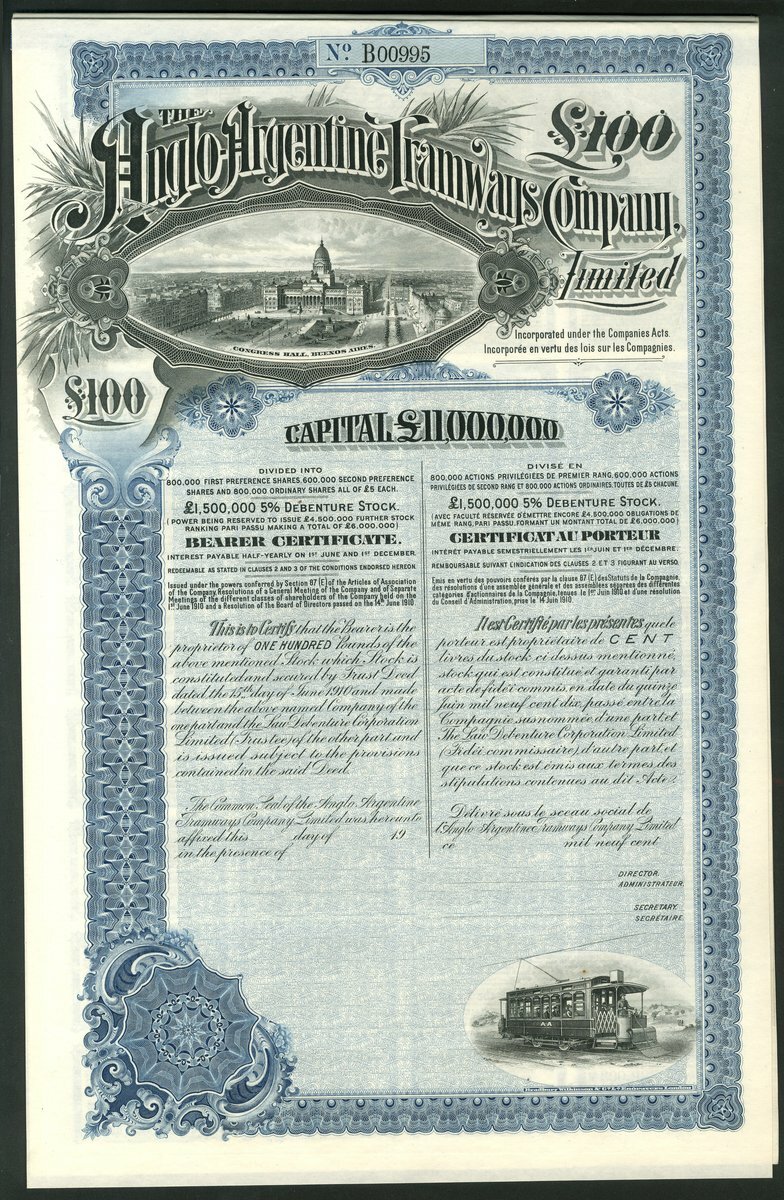 Nº B00995
THE
Anglo-Argentine Tramways Company,
£100
Limited
CONGRESS HALL, BUENOS AIRES.
Incorporated under the Companies Acts.
Incorporée en vertu des lois sur les Compagnies.
£100
CAPITAL £11,000,000
DIVIDED INTO
800,000 FIRST PREFERENCE SHARES, 600,000 SECOND PREFERENCE
SHARES AND 800,000 ORDINARY SHARES ALL OF £5 EACH.
£1,500,000 5% DEBENTURE STOCK.
(POWER BEING RESERVED TO ISSUE £4,500,000 FURTHER STOCK
RANKING PARI PASSU MAKING A TOTAL OF £6,000,000)
BEARER CERTIFICATE.
INTEREST PAYABLE HALF-YEARLY ON 1ST JUNE AND 1ST DECEMBER.
REDEEMABLE AS STATED IN CLAUSES 2 AND 3 OF THE CONDITIONS ENDORSED HEREON.
Issued under the powers conferred by Section 87 (E) of the Articles of Association
of the Company, Resolutions of a General Meeting of the Company and of Separate
Meetings of the different classes of shareholders of the Company held on the
1st June 1910 and a Resolution of the Board of Directors passed on the 14th June 1910
This is to Certify that the Bearer is the
proprietor of ONE HUNDRED Pounds of the
above mentioned Stock which Stock is
constituted and secured by Trust Deed
dated the 15th day of June 1910 and made
between the above named Company of the
one part and the Law Debenture Corporation
Limited (Trustee) of the other part and
is issued subject to the provisions
contained in the said Deed.
The Common Seal of the Anglo Argentine
Tramways Company Limited was hereunto
affixed this day of 19
in the presence of
DIVISÉ EN
800,000 ACTIONS PRIVILÉGIÉES DE PREMIER RANG, 600,000 ACTIONS
PRIVILÉGIÉES DE SECOND RANG ET 800,000 ACTIONS ORDINAIRES, TOUTES DE £5 CHACUNE.
£1,500,000 5% DEBENTURE STOCK.
(AVEC FACULTÉ RÉSERVÉE D'ÉMETTRE ENCORE £4,500,000 OBLIGATIONS DE
MÊME RANG, PARI PASSU, FORMANT UN MONTANT TOTAL DE £6,000,000)
CERTIFICAT AU PORTEUR
INTÉRÊT PAYABLE SEMESTRIELLEMENT LES 1ER JUIN ET 1ER DÉCEMBRE.
REMBOURSABLE SUIVANT INDICATION DES CLAUSES 2 ET 3 FIGURANT AU VERSO.
Emis en vertu des pouvoirs conférés par la clause 87 (E) des Statuts de la Compagnie,
des résolutions d'une assemblée générale et des assemblées séparées des différentes
catégories d'actionnaires de la Compagnie, tenues le 1er Juin 1910 et d'une résolution
du Conseil d'Administration, prise le 14 Juin 1910.
Il est Certifié par les présentes que le
porteur est propriétaire de CENT
livres du stock ci dessus mentionné,
stock qui est constitué et garanti par
acte de fidéi commis, en date du quinze
Juin mil neuf cent dix, passé entre la
Compagnie susnommée d'une part et
The Law Debenture Corporation Limited
(Fidéi commissaire) d'autre part, et
que ce stock est émis aux termes des
stipulations contenues au dit Acte.
Délivré sous le sceau social de
l'Anglo Argentine Tramways Company Limited
ce mil neuf cent
DIRECTOR.
ADMINISTRATEUR.
SECRETARY.
SECRÉTAIRE.
AA
Bradbury Wilkinson & Co Ld Engravers London